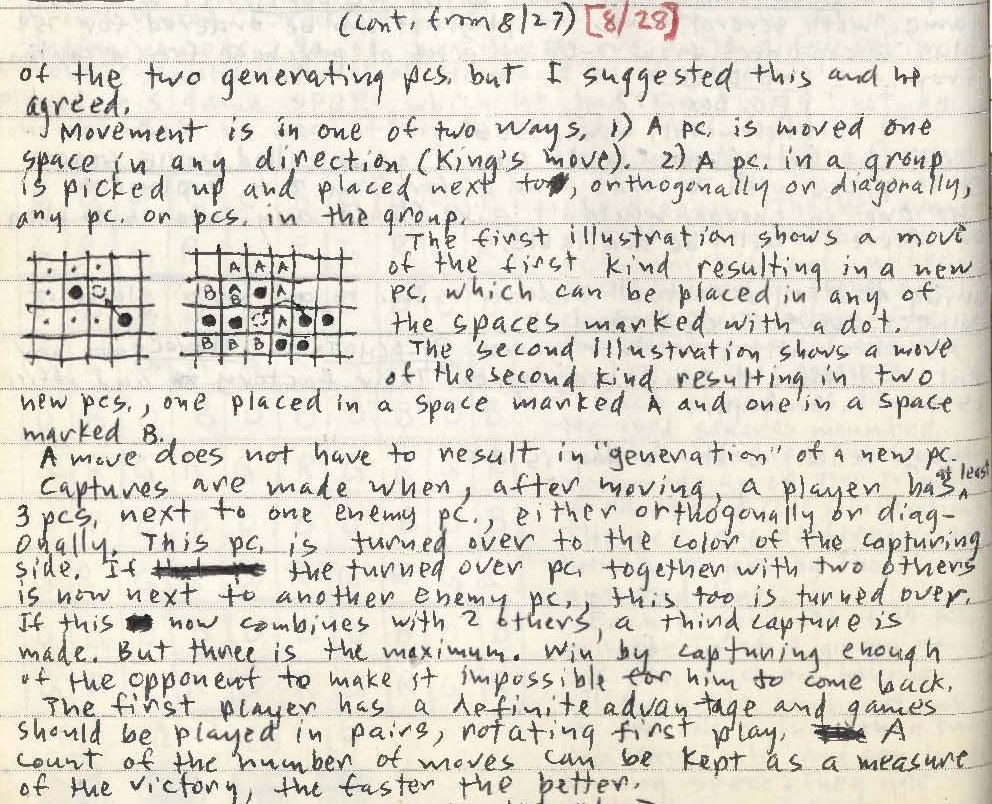 (Cont. from 8/27) [8/28]
of the two generating pcs. but I suggested this and he
agreed.
Movement is in one of two ways, 1) A pc. is moved one
space in any direction (King's move). 2) A pc. in a group
is picked up and placed next to, orthogonally or diagonally,
any pc. or pcs. in the group.
The first illustration shows a move
of the first kind resulting in a new
pc. which can be placed in any of
the spaces marked with a dot.
The second illustration shows a move
of the second kind resulting in two
A A A
B A B A
A
B B B
new pcs., one placed in a space marked A and one in a space
marked B.
A move does not have to result in "generation" of a new pc.
Captures are made when, after moving, a player has at least
3 pcs. next to one enemy pc., either orthogonally or diag-
onally. This pc. is turned over to the color of the capturing
side. If the turned over pc. together with two others
is now next to another enemy pc., this too is turned over.
If this now combines with 2 others, a third capture is
made. But three is the maximum. Win by capturing enough
of the opponent to make it impossible for him to come back.
The first player has a definite advantage and games
should be played in pairs, rotating first play. A
count of the number of moves can be kept as a measure
of the victory, the faster the better.